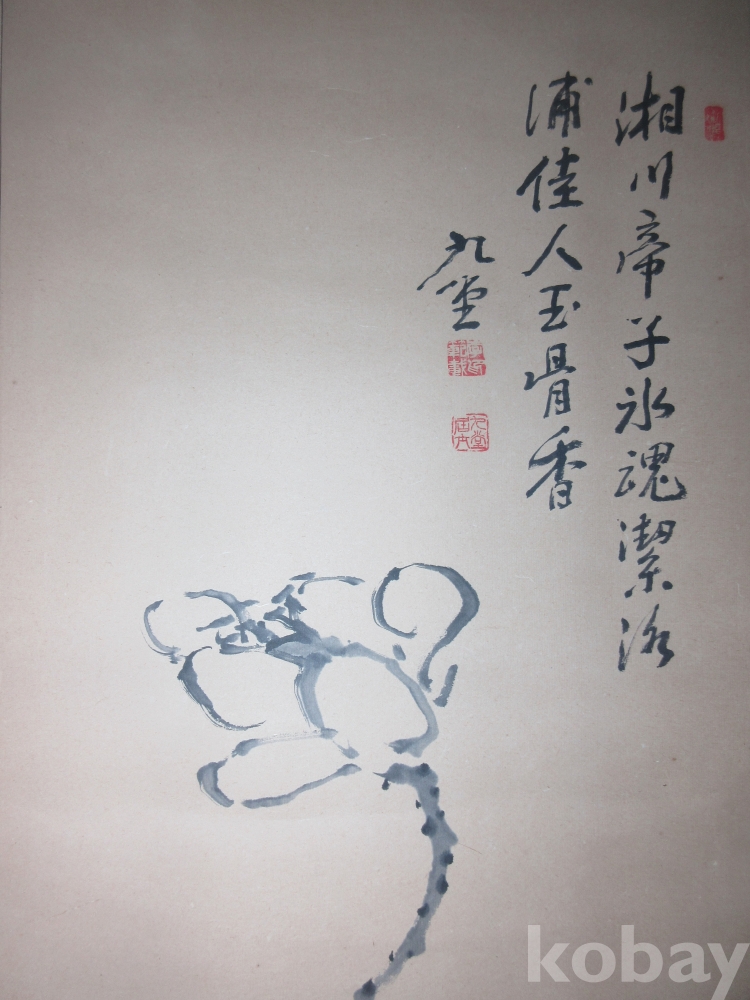 湘川帝子氷魂潔洛
浦佳人玉骨香
九堂
九堂
居士
kobay